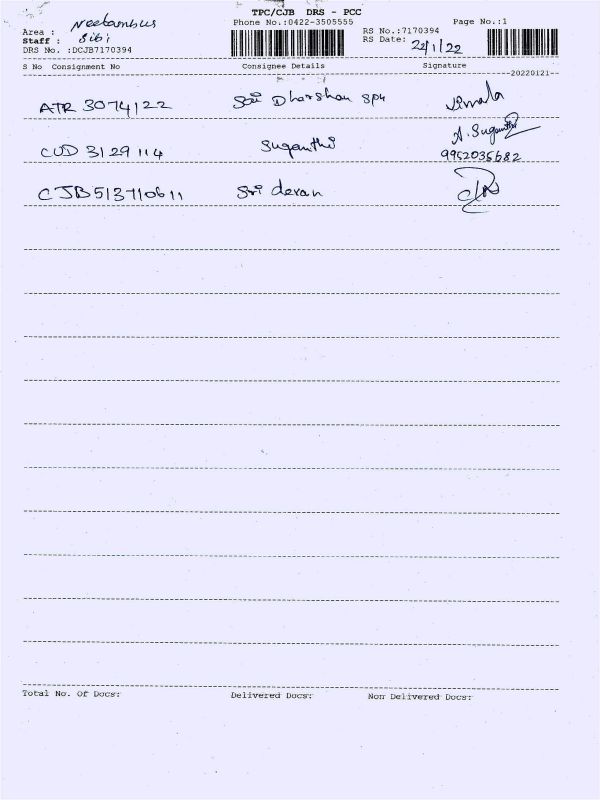 TPC/CJB DRS - PCC
Phone No.:0422-3505555
Page No.:1
Area : Neelambus
Staff : Bibi
DRS No. :DCJB7170394
RS No.:7170394
RS Date: 22/1/22
S No Consignment No Consignee Details Signature
--20220121--
ATR 3074122 Sai Dharshan Spu Vimala
CUD 3129114 Suganthi A. Suganthi
9952035682
CJB513710611 Sri devan
Total No. Of Docs: Delivered Docs: Non Delivered Docs: